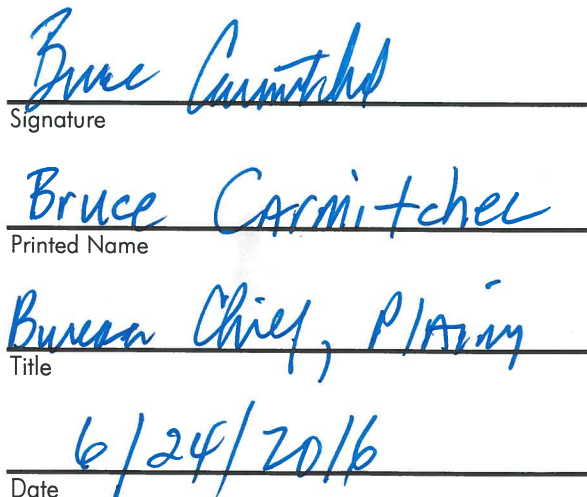 Bruce Carmitchel
Signature
Bruce CArmitchel
Printed Name
Bureau Chief, Planning
Title
6/24/2016
Date